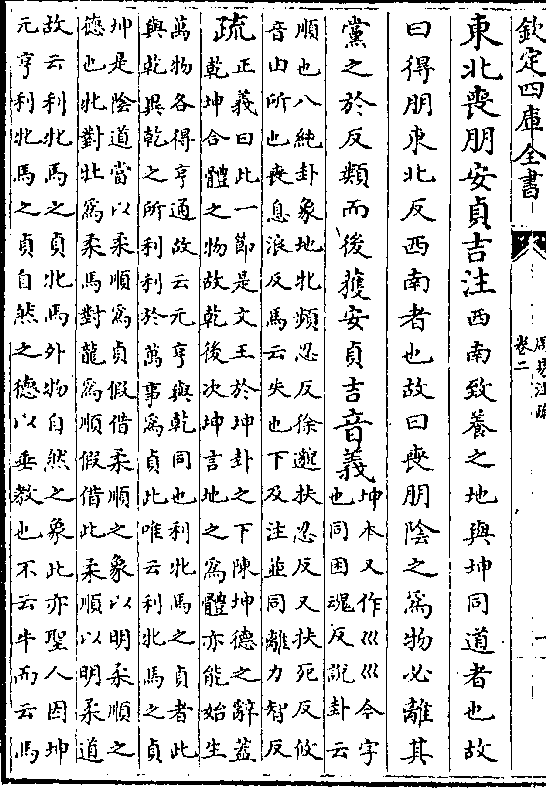 欽定四庫全書
周易注疏
卷二
一
東北喪朋安貞吉注西南致養之地與坤同道者也故
曰得朋東北反西南者也故曰喪朋陰之為物必離其
黨之於反類而後獲安貞吉音義
坤本又作巛巛今字
也同困魂反說卦云
順也八純卦象地牝頻忍反徐邈扶忍反又扶死反攸
音由所也喪息浪反馬云失也下及注並同離力智反
疏
正義曰此一節是文王於坤卦之下陳坤德之辭蓋
乾坤合體之物故乾後次坤言地之為體亦能始生
萬物各得亨通故云元亨與乾同也利牝馬之貞者此
與乾異乾之所利利於萬事為貞此唯云利牝馬之貞
坤是陰道當以柔順為貞假借柔順之象以明柔順之
德也牝對牡為柔馬對龍為順假借此柔順以明柔道
故云利牝馬之貞牝馬外物自然之象此亦聖人因坤
元亨利牝馬之貞自然之德以垂教也不云牛而云馬